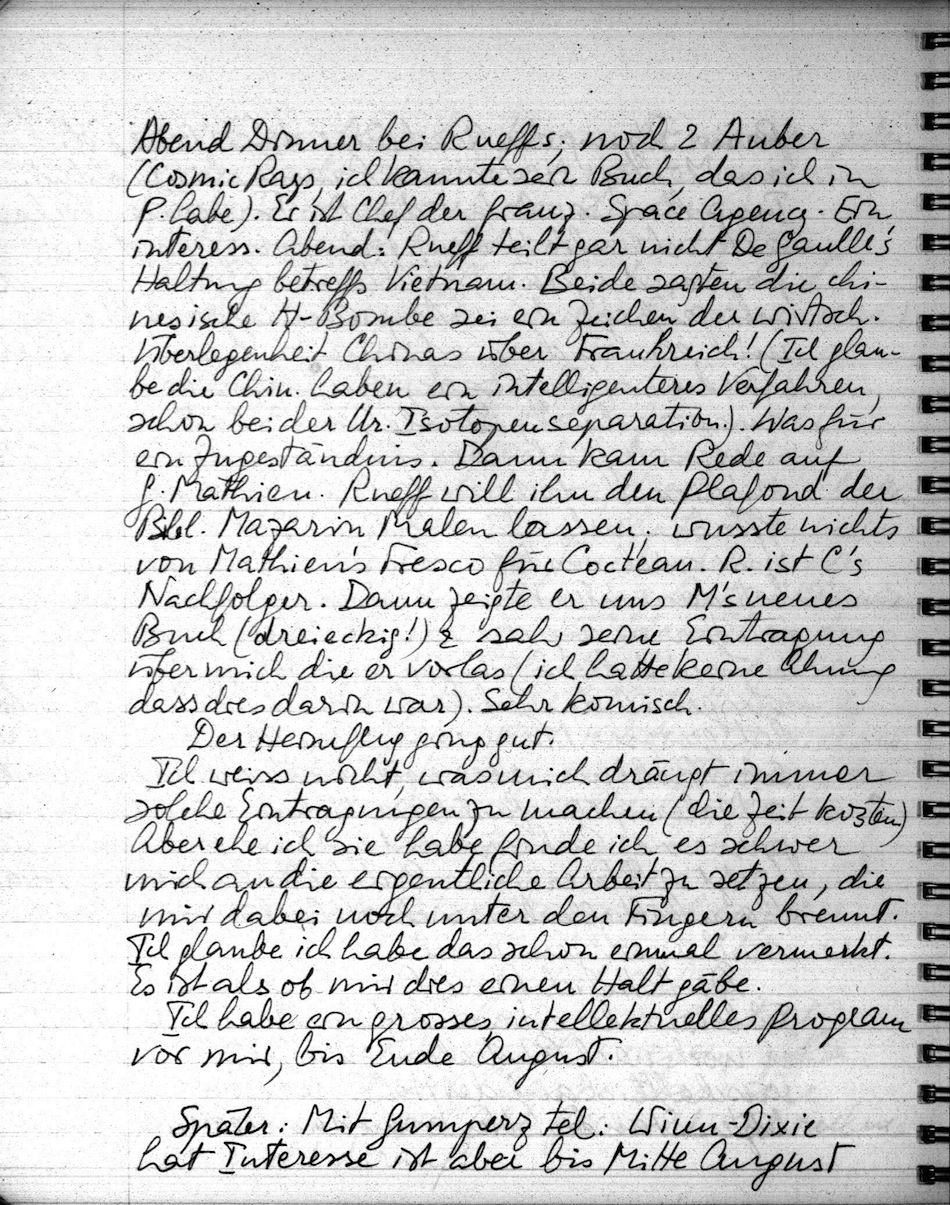 Abend Dinner bei Rueffs; noch 2 Auber
(Cosmic Rays, ich kannte sein Buch, das ich in
P. habe). Er ist Chef der franz. Space Agency. Ein
interess. Abend: Rueff teilt gar nicht De Gaulle's
Haltung betreffs Vietnam. Beide sagten die chi-
nesische H-Bombe sei ein Zeichen der wirtsch.
Überlegenheit Chinas über Frankreich! (Ich glau-
be die Chin. haben ein intelligenteres Verfahren,
schon bei der Ur. Isotopenseparation.). Was für
ein Zugeständnis. Dann kam Rede auf
G. Mathieu. Rueff will ihn den Plafond der
Bibl. Mazarin Malen lassen; wusste nichts
von Mathieu's Fresco für Cocteau. R. ist C's
Nachfolger. Dann zeigte er uns M's neues
Buch (dreieckig!) & sah seine Eintragung
über mich die er vorlas (ich hatte keine Ahnung
dass dies darin war). Sehr komisch.
Der Heimflug ging gut.
Ich weiss nicht, was mich drängt immer
solche Eintragungen zu machen (die Zeit kosten)
Aber ehe ich sie habe finde ich es schwer
mich an die eigentliche Arbeit zu setzen, die
mir dabei noch unter den Fingern brennt.
Ich glaube ich habe das schon einmal vermerkt.
Es ist als ob mir dies einen Halt gäbe.
Ich habe ein grosses, intellektuelles Program
vor mir, bis Ende August.
Später: Mit Gumperz tel: Winn-Dixie
hat Interesse ist aber bis Mitte August